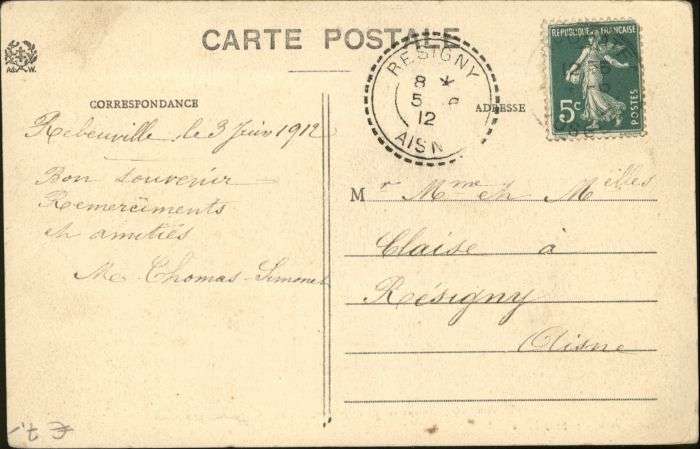 CARTE POSTALE
A. & W.
CORRESPONDANCE
Rebeuville, le 3 Juin 1912
Bon souvenir
Remerciments
et amitiés
Me Thomas-Simonet
RESIGNY
8 *
5 6
12
AISN
ADRESSE
REPUBLIQUE FRANÇAISE
5c
POSTES
Mr Mme et Melles
Claise à
Résigny
Aisne